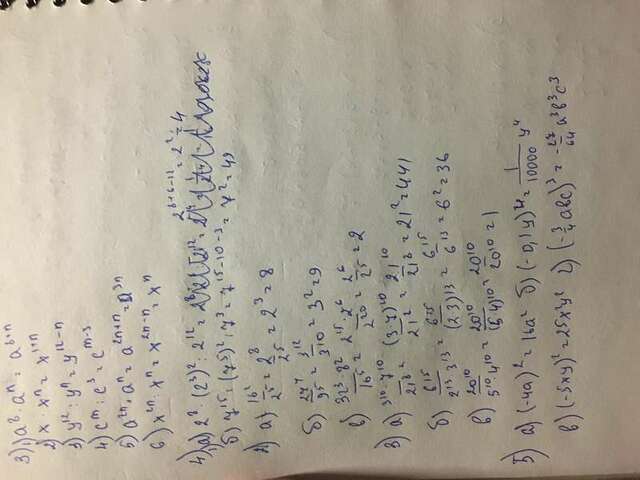 3) 1) a⁸ · aⁿ = a⁸⁺ⁿ
2) x · xⁿ = x¹⁺ⁿ
3) y¹² : yⁿ = y¹²⁻ⁿ
4) cᵐ : c³ = cᵐ⁻³
5) a²ⁿ · aⁿ = a²ⁿ⁺ⁿ = a³ⁿ
6) x²ⁿ : xⁿ = x²ⁿ⁻ⁿ = xⁿ
4) 1) а) 2⁸ · (2³)² : 2¹² = 2⁸⁺⁶⁻¹² = 2² = 4
б) 7¹⁵ : (7⁵)² : 7³ = 7¹⁵⁻¹⁰⁻³ = 7² = 49
2) а) 16²/2⁵ = 2⁸/2⁵ = 2³ = 8
б) 27⁴/9⁵ = 3¹²/3¹⁰ = 3² = 9
в) 32³·8²/16⁵ = 2¹⁵·2⁶/2²⁰ = 2⁶/2⁵ = 2
3) а) 3¹⁰·7¹⁰/21⁸ = (3·7)¹⁰/21⁸ = 21¹⁰/21⁸ = 21² = 441
б) 6¹⁵/2¹³·3¹³ = 6¹⁵/(2·3)¹³ = 6¹⁵/6¹³ = 6² = 36
в) 20¹⁰/5¹⁰·4¹⁰ = 20¹⁰/(5·4)¹⁰ = 20¹⁰/20¹⁰ = 1
5) а) (-4a)² = 16a² б) (-0,1y)⁴ = 1/10000 y⁴
в) (-5xy)² = 25x²y² г) (-3/4 abc)³ = -27/64 a³b³c³